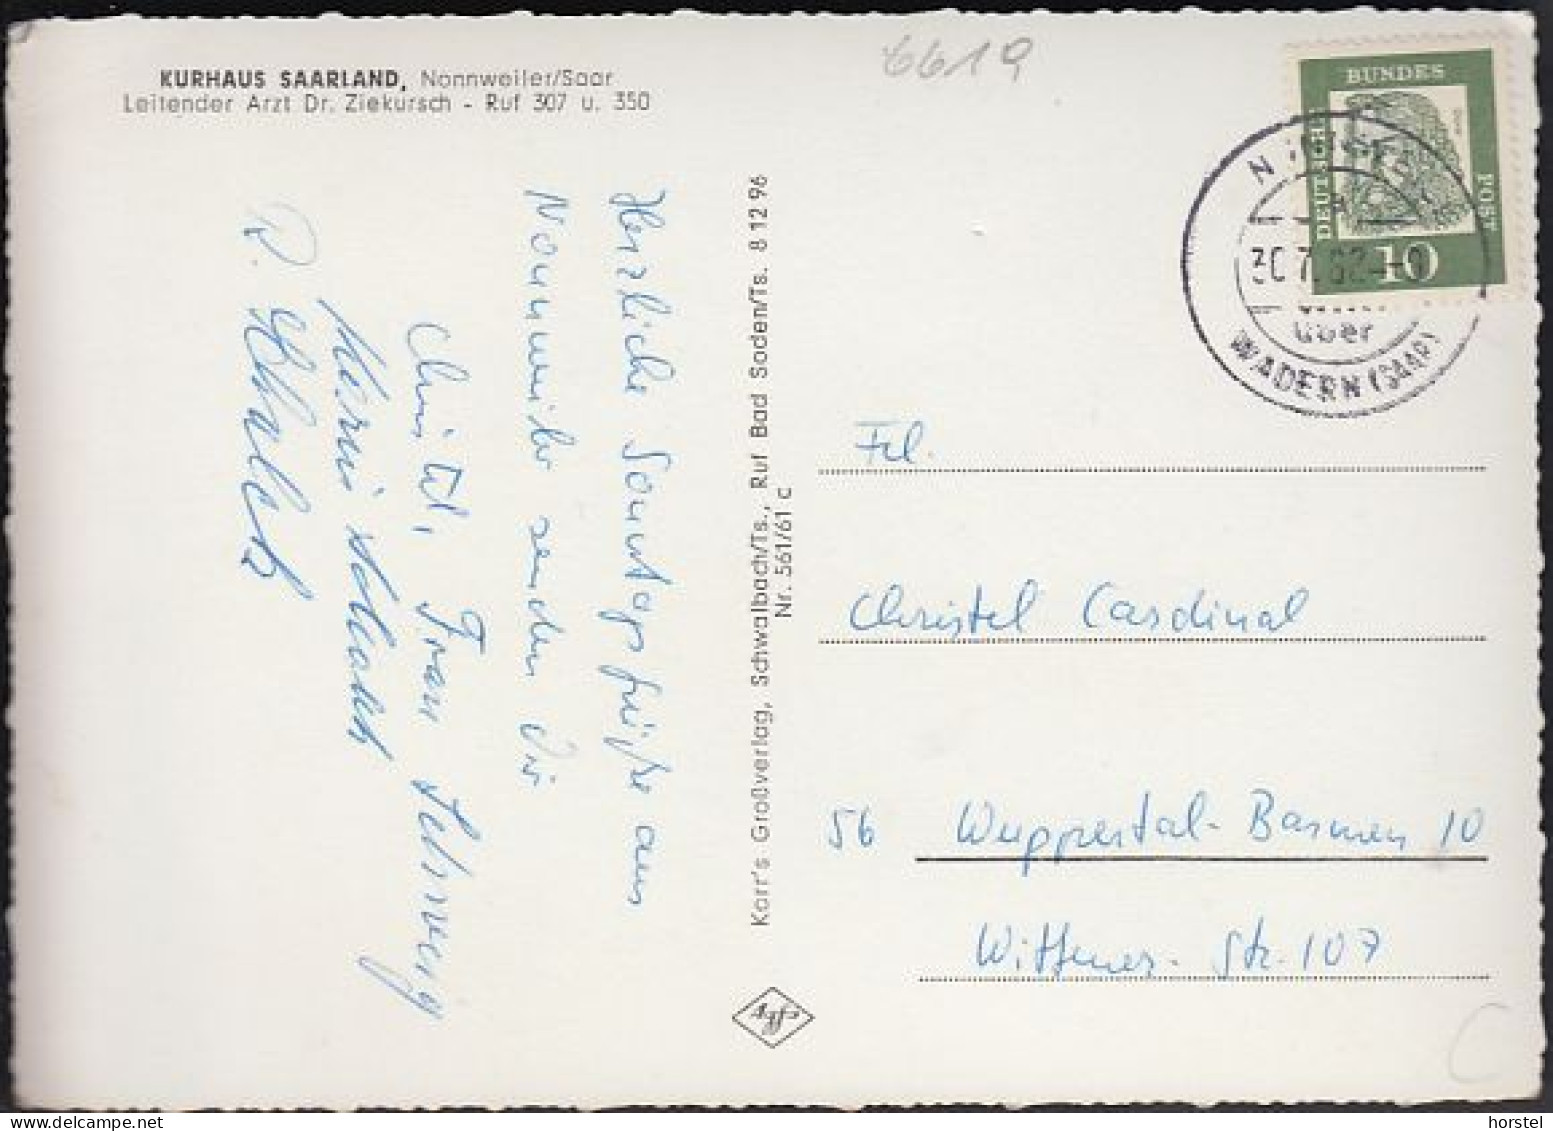 KURHAUS SAARLAND, Nonnweiler/Saar
Leitender Arzt Dr. Ziekursch - Ruf 307 u. 350
6619
Herzliche Sonntagsgrüße aus
Nonnweiler senden Dir
Christel, Frau
Karr's Großverlag, Schwalbach/Ts., Ruf Bad Soden/Ts. 8 12 96
Nr. 561/61 c
Agfa
DEUTSCHE
BUNDES
POST
10
30.7.62
über
WADERN (SAAR)
Frl.
Christel Cardinal
56 Wuppertal-Barmen 10
Wittener-Str. 107
C
hinweis: horstel